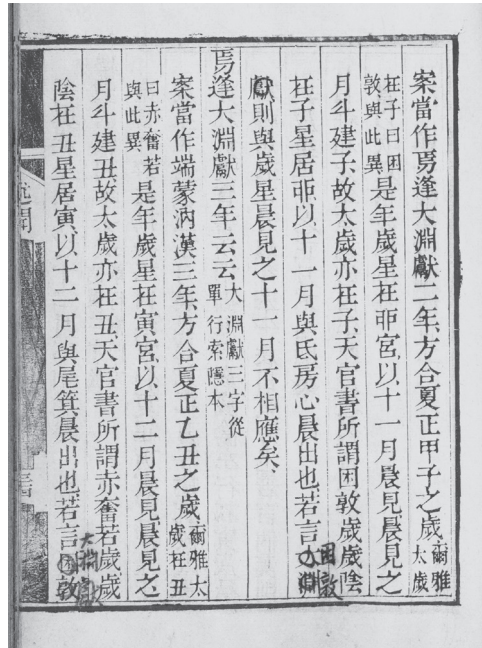 案當作焉逢大淵獻二年、方合夏正甲子之歲爾雅太歲
在子曰困敦與此異是年歲星在卯宮、以十一月晨見、晨見之
月斗建子、故太歲亦在子、天官書所謂困敦歲歲陰
在子星居卯、以十一月與氐房心晨出也、若言大淵
困敦
獻則與歲星晨見之十一月不相應矣、
焉逢大淵獻三年云云大淵獻三字從單行索隱本
案當作端蒙汭漢三年、方合夏正乙丑之歲爾雅太歲在丑
曰赤奮若與此異是年歲星在寅宮、以十二月晨見、晨見之
月斗建丑、故太歲亦在丑、天官書所謂赤奮若歲歲
陰在丑星居寅、以十二月與尾箕晨出也、若言困敦
大淵獻